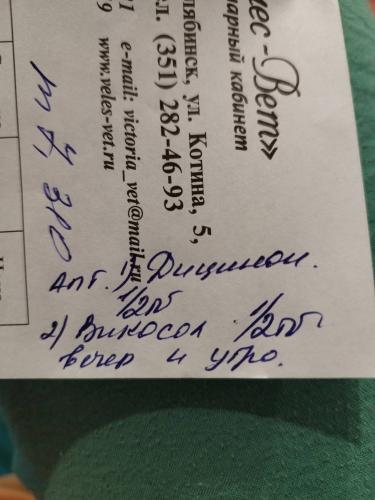 лес-Вет»
парный кабинет
лябинск, ул. Котина, 5,
ел. (351) 282-46-93
e-mail: victoria_vet@mail.ru
www.veles-vet.ru
Апт. 1) Дицинон.
1/2т
2) Викосол 1/2т
вечер и утро.